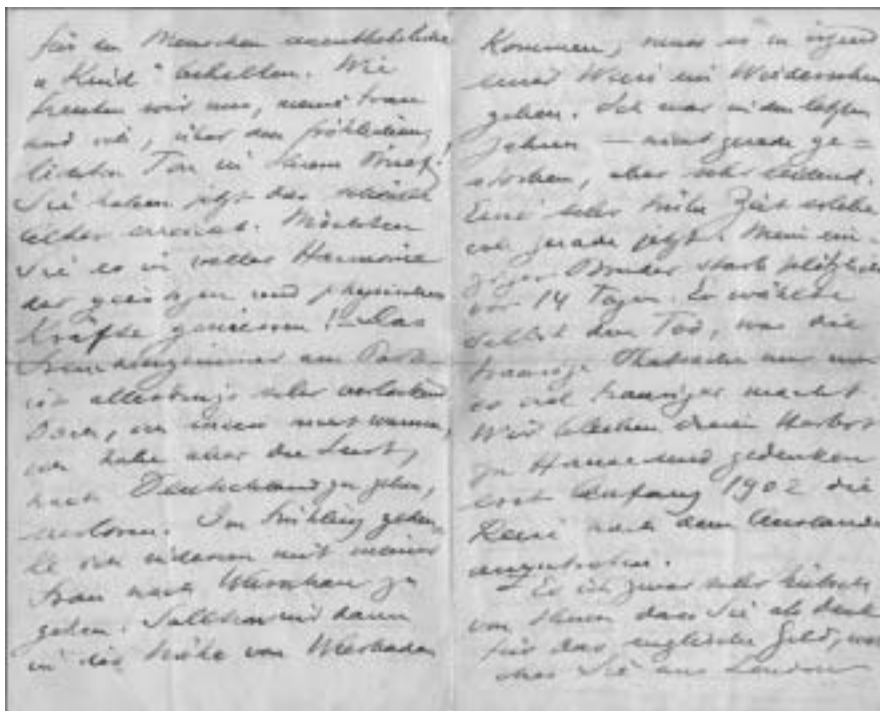 für den Menschen unentbehrliche
"Kind" behalten. Wie
freuten wir uns, meine Frau
und ich, über den fröhlichen,
Ton in Ihrem Brief!
Sie haben jetzt das schönste
Alter erreicht. Möchten
Sie es in voller Harmonie
der geistigen und physischen
Kräfte geniessen! — Das
Fremdenzimmer am Park
ist allerdings sehr verlockend
habe aber die Lust,
nach Deutschland zu gehen,
verloren. Im Frühling geden-
ke ich indessen mit meiner
Frau nach zu
gehen. Sollten wir dann
in die Nähe von Wiesbaden
kommen, muss es in irgend
einer Weise ein Wiedersehen
geben. Ich war in den letzten
Jahren — nicht gerade ge=
storben, aber sehr leidend.
Eine sehr trübe Zeit erlebe
ich gerade jetzt. Mein ein-
ziger Bruder starb plötzlich
vor 14 Tagen. Er wählte
selbst den Tod, was die
traurige Thatsache nur um
so viel trauriger macht.
Wir bleiben diesen Herbst
zu Hause und gedenken
erst Anfang 1902 die
Reise nach dem Auslande
anzutreten.
Es ist zwar sehr hübsch
von Ihnen dass Sie als Dank
für das englische Geld, wel-
ches Sie aus London